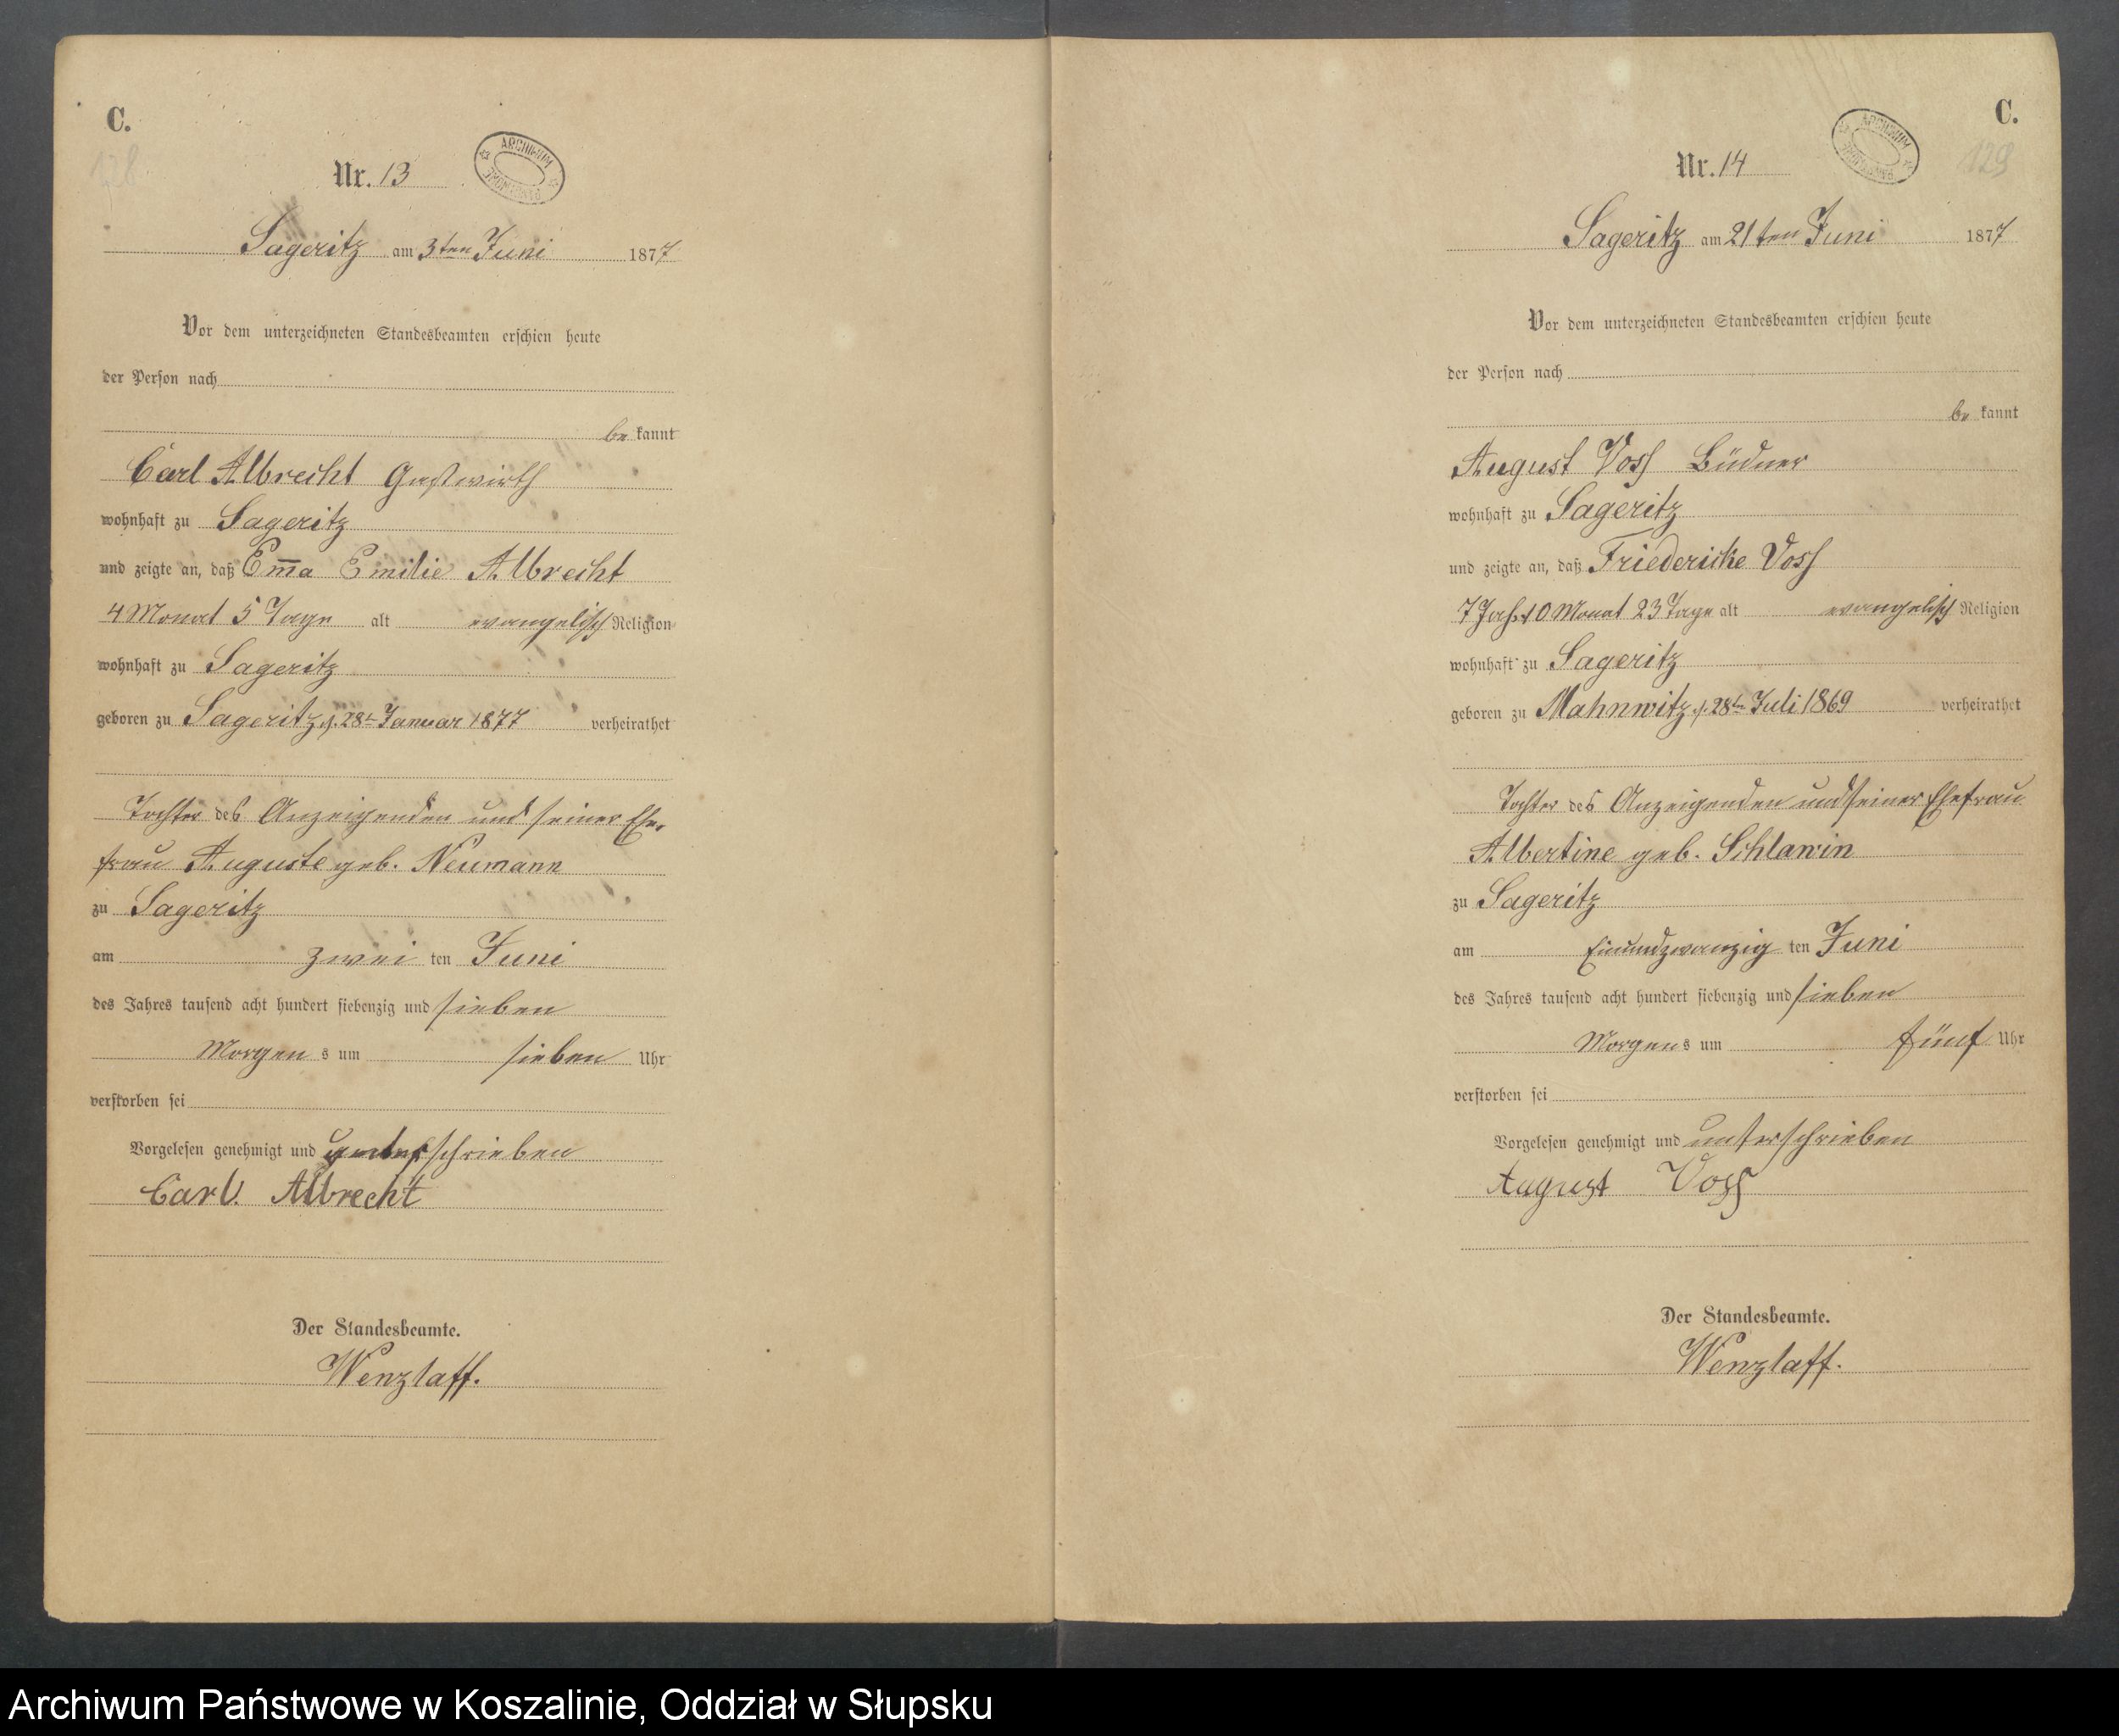 C.
128
Nr. 13
ARCHIWUM
Sageritz am 3ten Juni 1877
Vor dem unterzeichneten Standesbeamten erschien heute
der Person nach
be kannt
Carl Albrecht Gastwirth
wohnhaft zu Sageritz
und zeigte an, daß Em̅a Emilie Albrecht
4 Monat 5 Tage alt evangelisch Religion
wohnhaft zu Sageritz
geboren zu Sageritz d. 28t Januar 1877 verheirathet
Tochter des Anzeigenden und seiner Ehe-
frau Auguste geb. Neumann
zu Sageritz
am zwei ten Juni
des Jahres tausend acht hundert siebenzig und sieben
Morgen s um sieben Uhr
verstorben sei
Vorgelesen genehmigt und unterschrieben
Carl. Albrecht
Der Standesbeamte.
Wenzlaff.
C.
129
Nr. 14
ARCHIWUM
Sageritz am 21ten Juni 1877
Vor dem unterzeichneten Standesbeamten erschien heute
der Person nach
be kannt
August Voss Büdner
wohnhaft zu Sageritz
und zeigte an, daß Friedericke Voss
7 Jahr 10 Monat 23 Tage alt evangelisch Religion
wohnhaft zu Sageritz
geboren zu Mahnwitz d. 28ten Juli 1869 verheirathet
Tochter des Anzeigenden und seiner Ehefrau
Albertine geb. Schlawin
zu Sageritz
am Einundzwanzig ten Juni
des Jahres tausend acht hundert siebenzig und sieben
Morgen s um fünf Uhr
verstorben sei
Vorgelesen genehmigt und unterschrieben
August Voss
Der Standesbeamte.
Wenzlaff.
Archiwum Państwowe w Koszalinie, Oddział w Słupsku